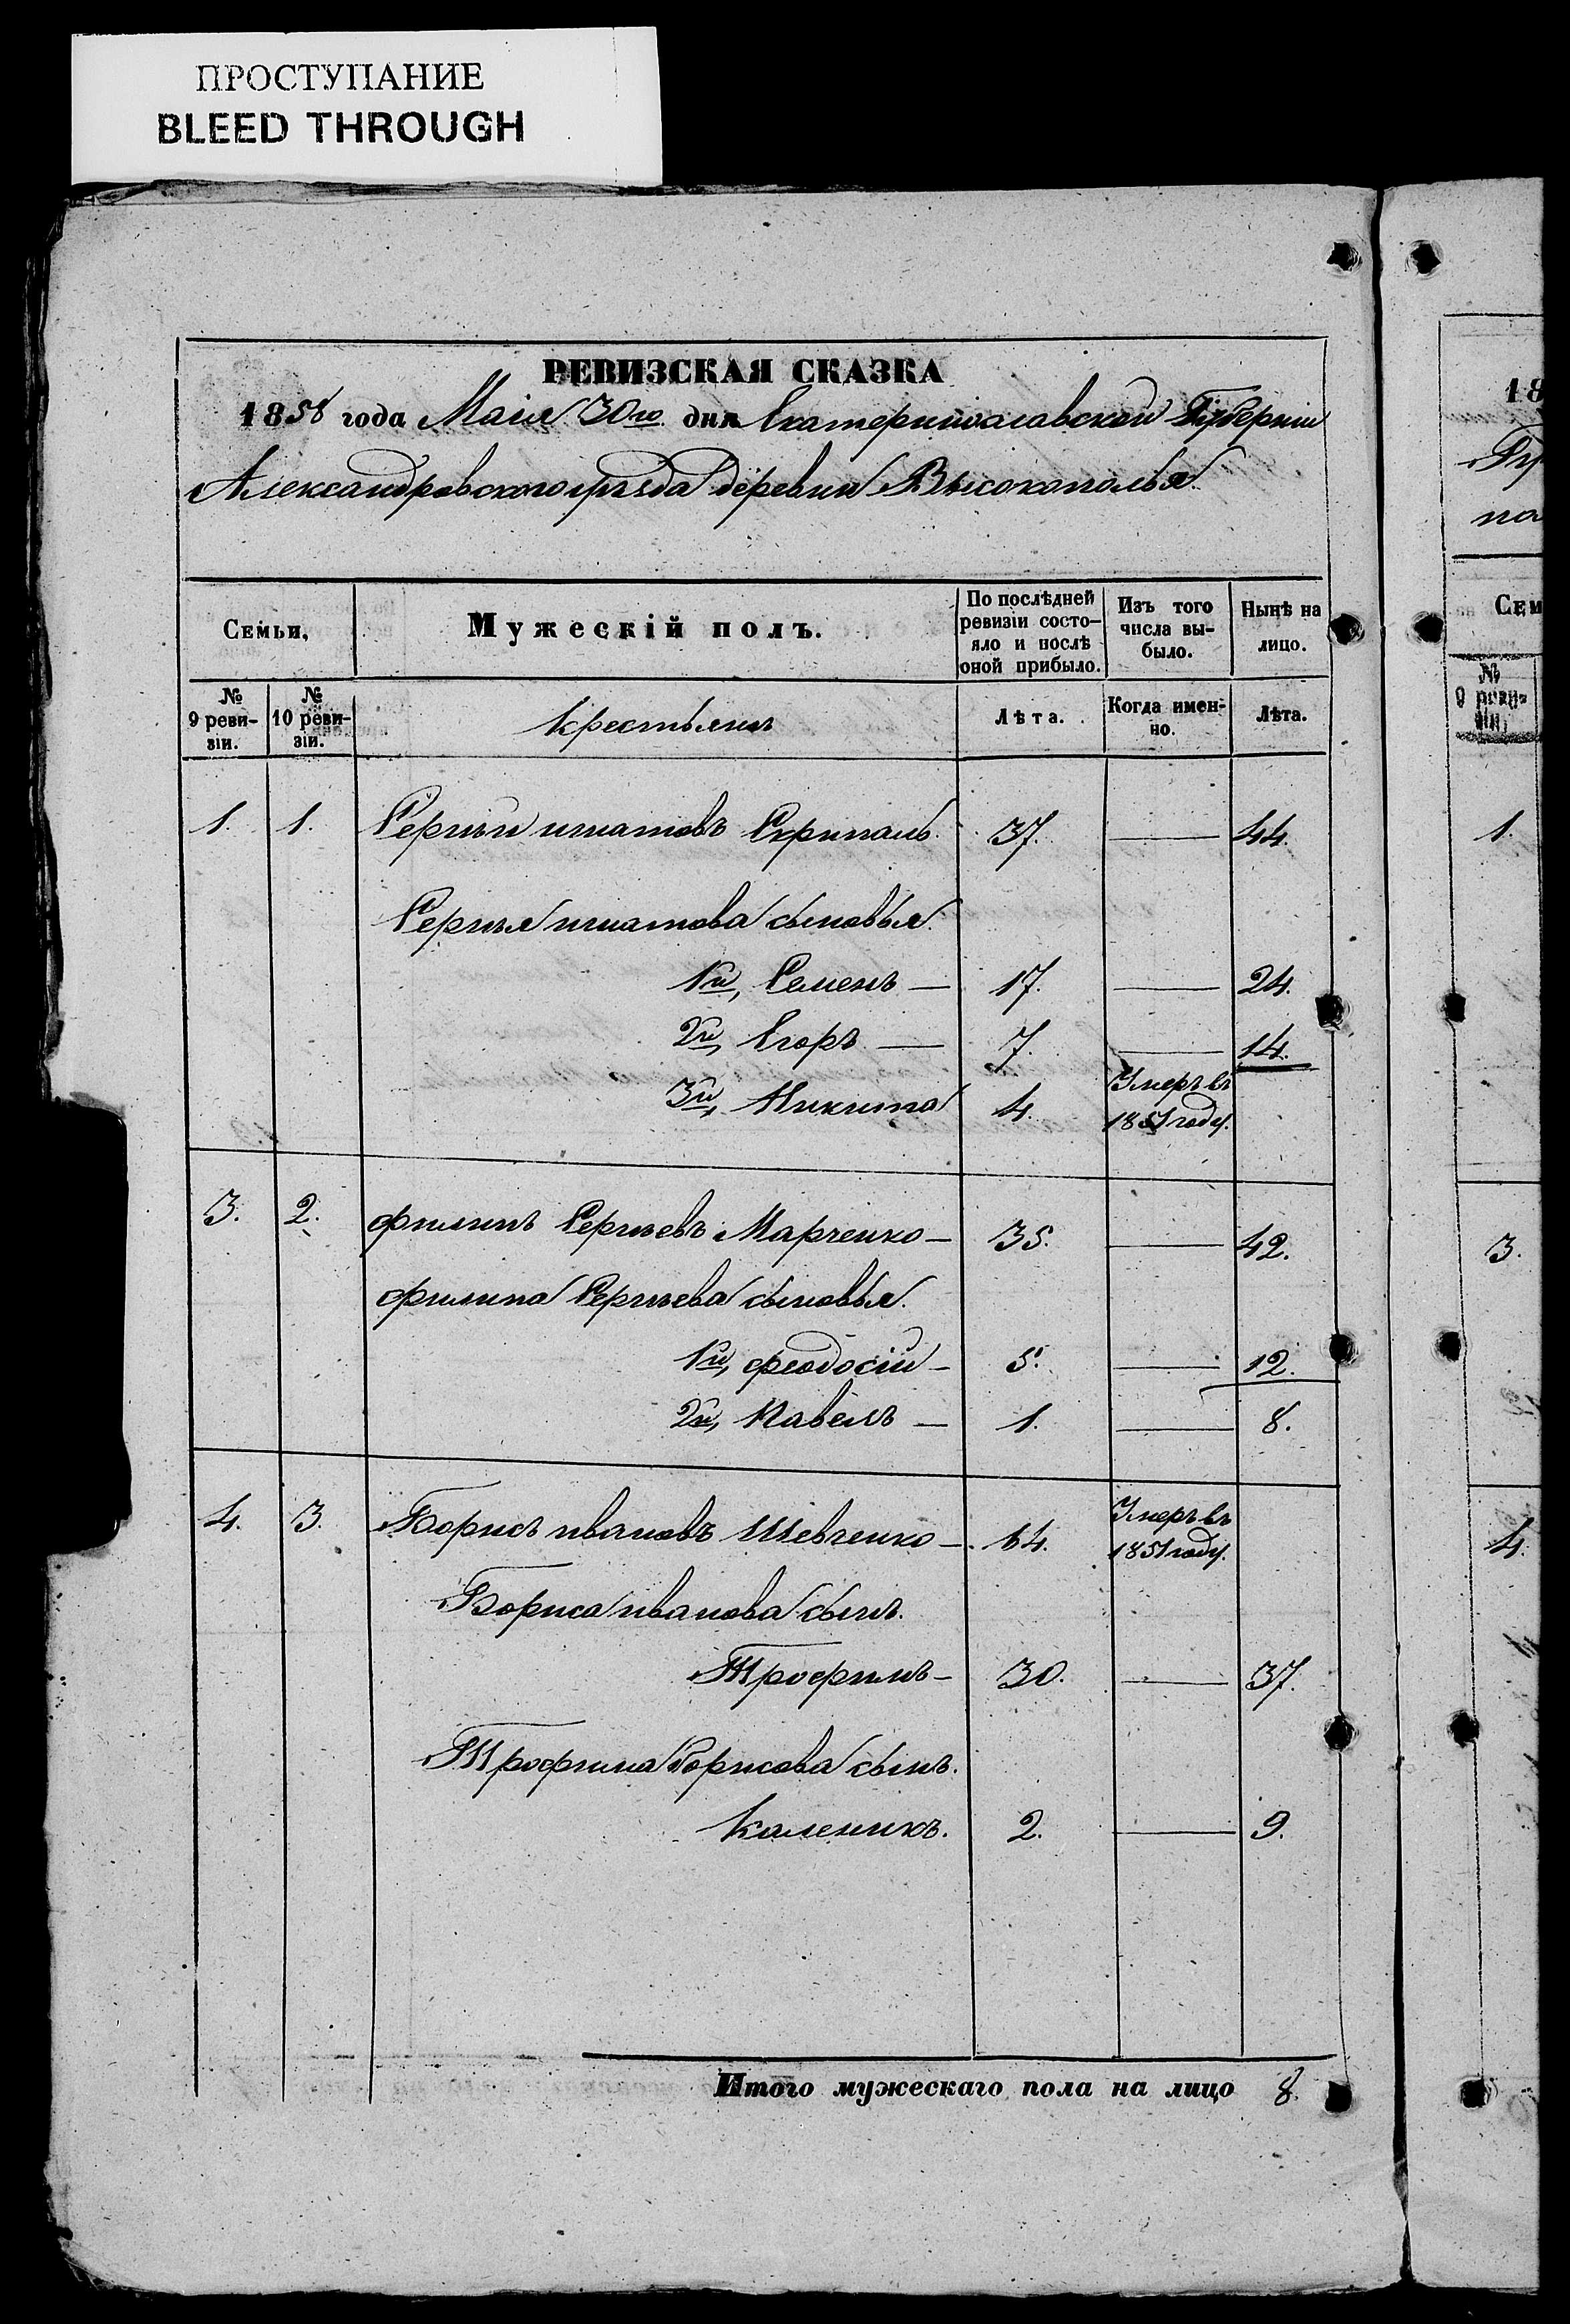 ПРОСТУПАНИЕ
BLEED THROUGH
РЕВИЗСКАЯ СКАЗКА
1858 года Маія 30го дня Екатеринославской Губерніи
Александровского уѣзда деревни Высокополья.
Семьи,
Мужескій полъ.
По послѣдней ревизіи состояло и послѣ оной прибыло.
Изъ того числа выбыло.
Нынѣ на лицо.
№ 9 ревизіи.
№ 10 ревизіи.
Крестьянъ
Лѣта.
Когда именно.
Лѣта.
1. 1. Сергѣй Игнатовъ Скрипаль. 37. — 44.
Сергѣя Игнатова сыновья.
1й, Семенъ — 17. — 24.
2й, Егоръ — 7. — 14.
3й, Никита 4. Умеръ въ 1851 году.
3. 2. Филипъ Сергѣевъ Марченко — 35. — 42.
Филипа Сергѣева сыновья.
1й, Феодосій — 5. — 12.
2й, Павелъ — 1. — 8.
4. 3. Борисъ Ивановъ Шевченко — 64. Умеръ въ 1851 году.
Бориса Иванова сынъ.
Трофимъ — 30. — 37.
Трофима Борисова сынъ.
Каленикъ. 2. — 9.
Итого мужескаго пола на лицо 8.
18
Гу
по
Сем
№ 9 реви-
зіи.
1.
3.
4.